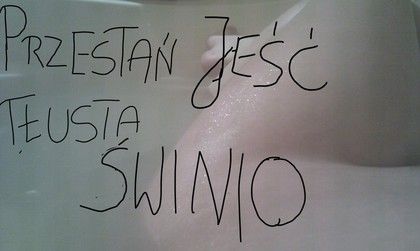 PRZESTAŃ JEŚĆ
TŁUSTA
ŚWINIO